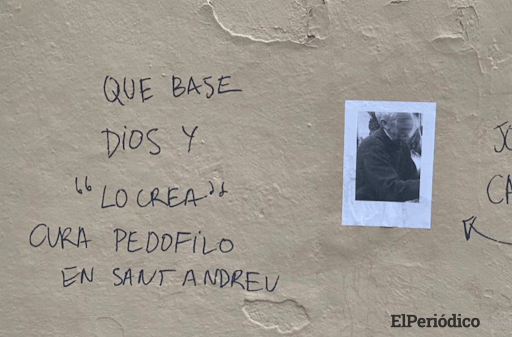 QUE BASE
DIOS Y
“LO CREA”
CURA PEDOFILO
EN SANT ANDREU
JO
CA
ElPeriódico